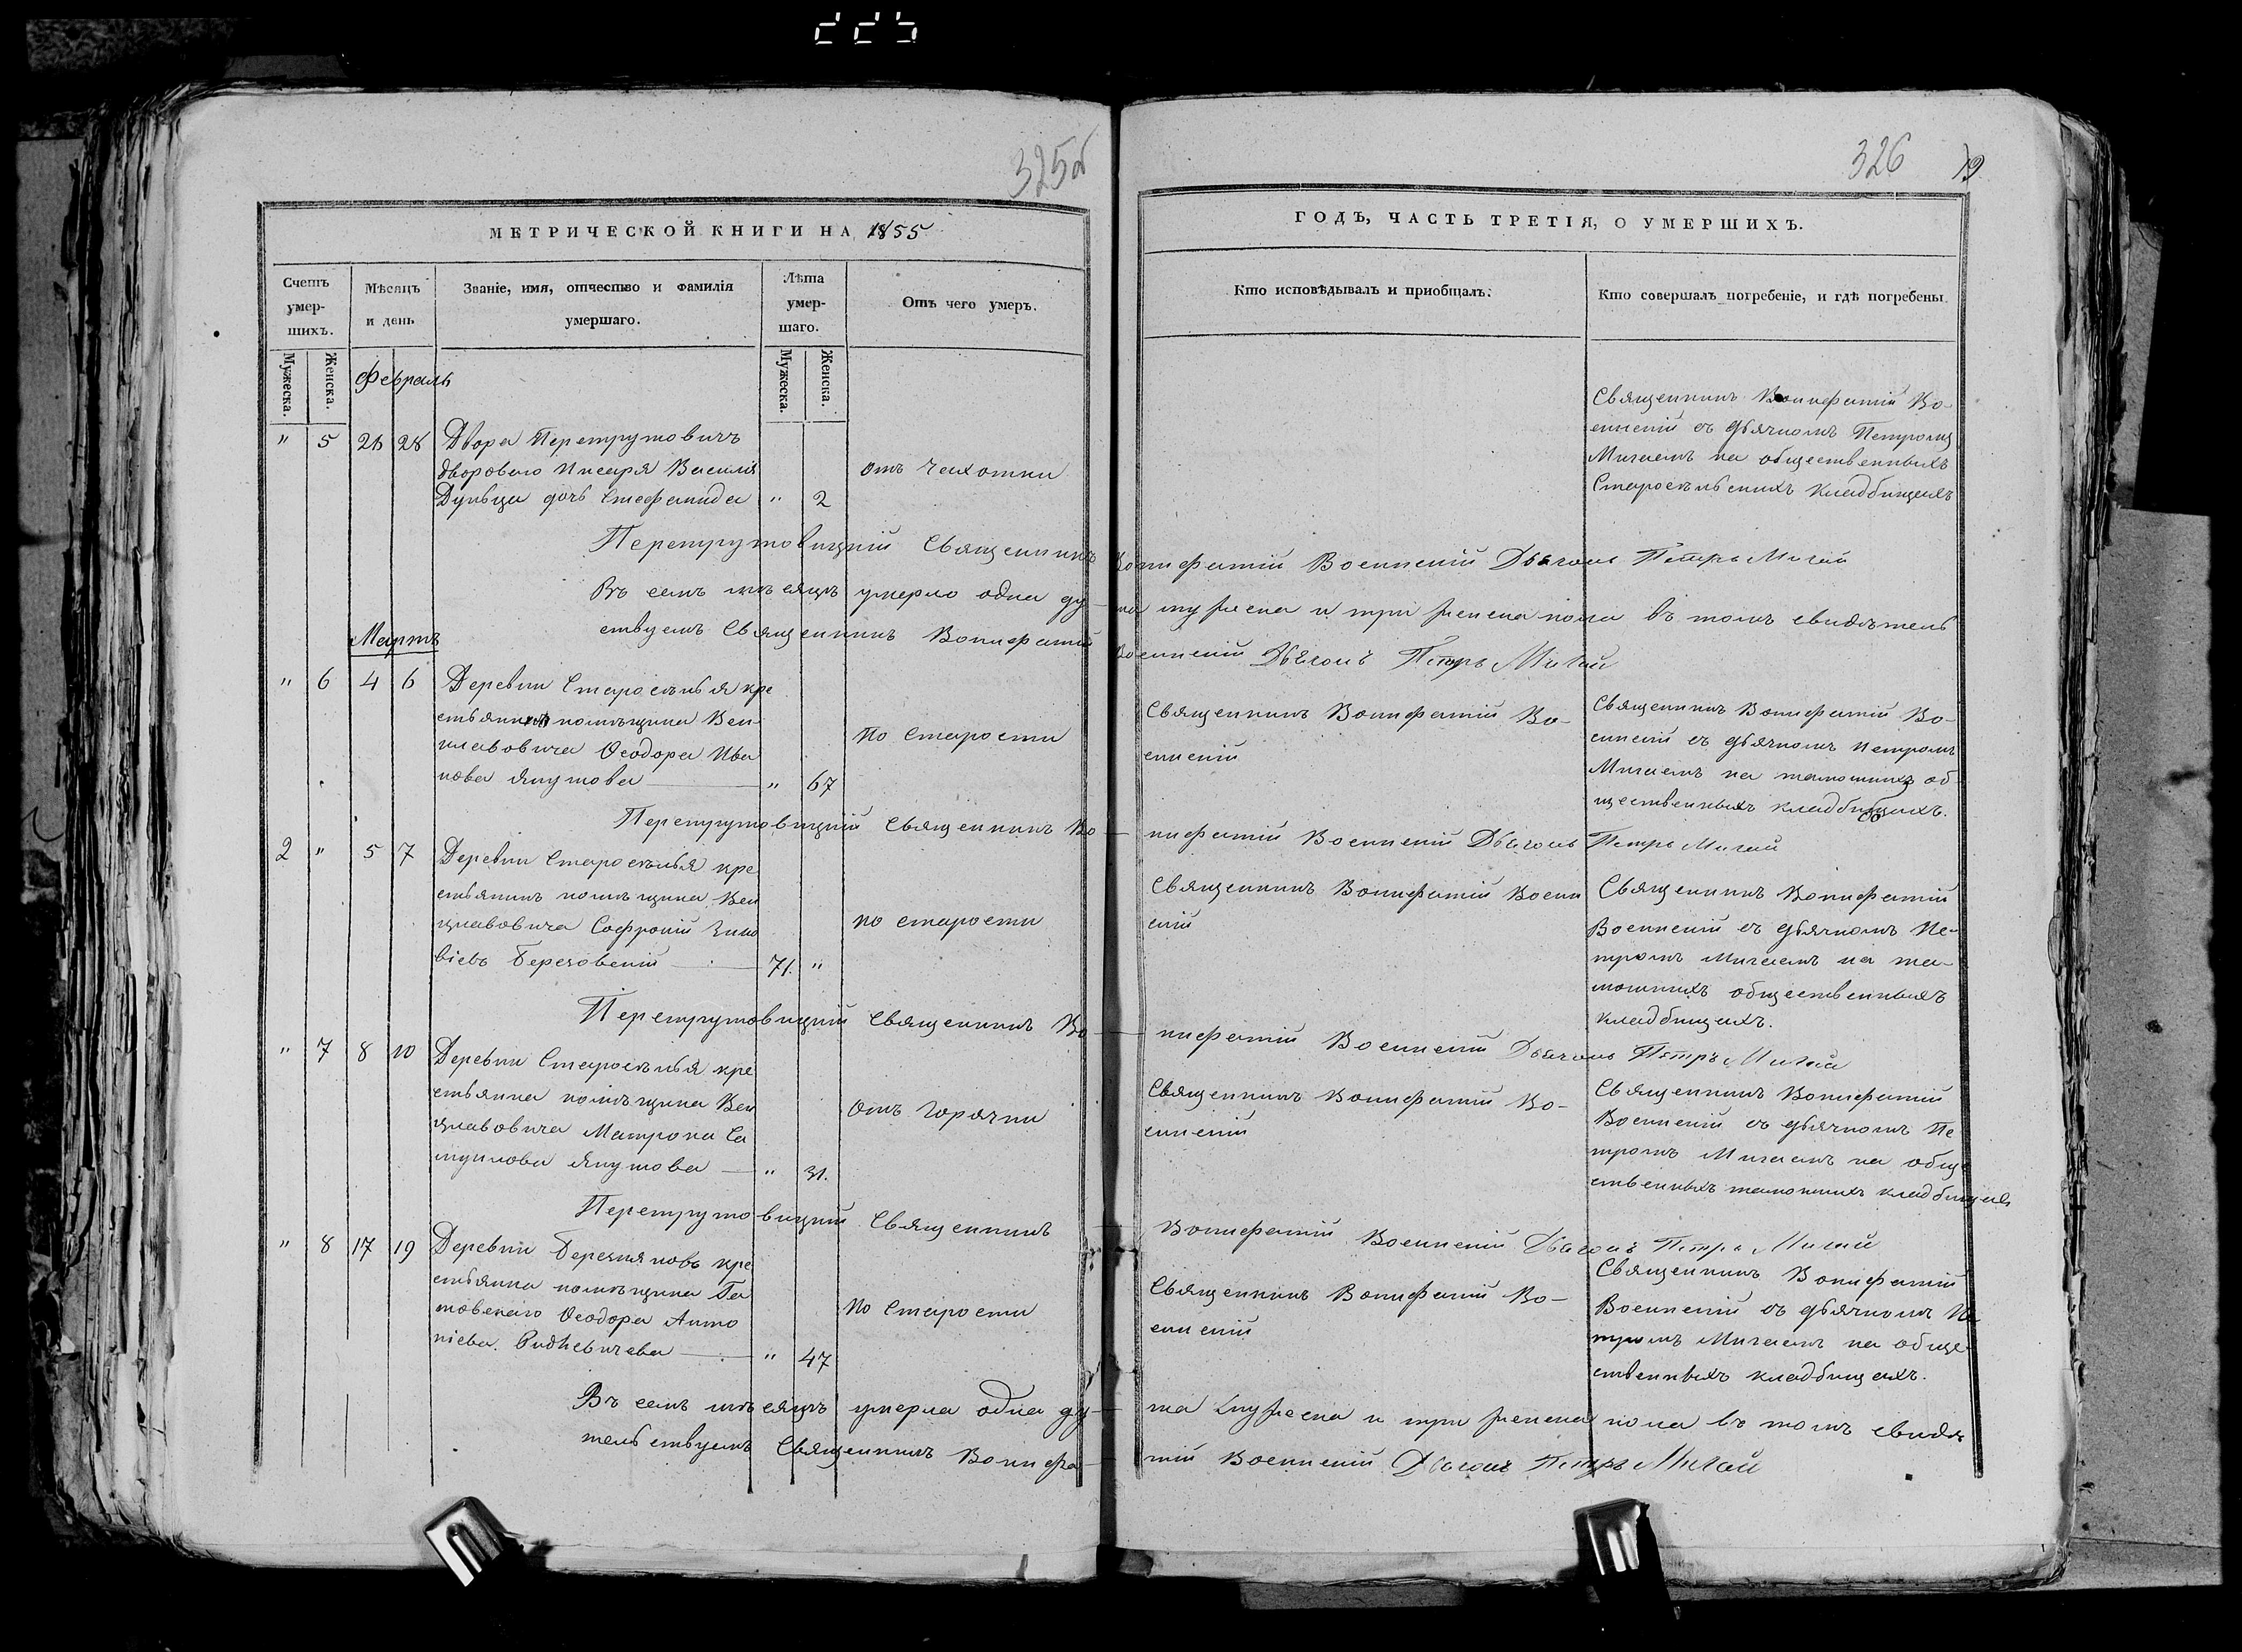 325об
326
МЕТРИЧЕСКОЙ КНИГИ НА 1855
ГОДЪ, ЧАСТЬ ТРЕТІЯ, О УМЕРШИХЪ.
Счетъ умершихъ.
Мѣсяцъ и день
Званіе, имя, отчество и фамилія умершаго.
Лѣта умершаго.
Отъ чего умеръ.
Кто исповѣдывалъ и приобщалъ.
Кто совершалъ погребеніе, и гдѣ погребены
Мужеска.
Женска.
Мужеска.
Женска.
Февраль
" 5 26 28
Двора Перетрутовичъ
дворового писаря Василія
дочь Стефанида " 2
отъ чахотки
Священникъ Вонифатій Во-
енскій съ дьячкомъ Петромъ
Мигаемъ на общественныхъ
Старосельскихъ кладбищахъ
Перетрутовицкій Священникъ Вонифатій Военскій Дьячокъ Петръ Мигай
Въ семъ мѣсяцѣ умерло одна ду-ша мужеска и три женска пола въ томъ свидѣтель
ствуемъ Священникъ Вонифатій Военскій Дьячокъ Петръ Мигай
Мартъ
" 6 4 6
Деревни Староселья кре
помѣщика Вен-
цлавовича Ѳеодора Ива
нова Якутова " 67
по старости
Священникъ Вонифатій Во-
енскій
Священникъ Вонифатій Во-
енскій съ дьячкомъ Петромъ
Мигаемъ на тамошнихъ об
щественныхъ кладбищахъ.
Перетрутовицкій Священникъ Во-нифатій Военскій Дьячокъ Петръ Мигай
2 " 5 7
Деревни Староселья кре
стьянинъ помѣщика Вен
цлавовича Софроній Зино
віевъ Березовскій 71. "
по старости
Священникъ Вонифатій Воен
скій
Священникъ Вонифатій
Военскій съ дьячкомъ Пе-
тромъ Мигаемъ на та-
мошнихъ общественныхъ
кладбищахъ.
Перетрутовицкій Священникъ Во-нифатій Военскій Дьячокъ Петръ Мигай
" 7 8 10
Деревни Староселья кре
стьянка помѣщика Вен
цлавовича Матрона Са
муилова Якутова " 31.
отъ горячки
Священникъ Вонифатій Во-
енскій
Священникъ Вонифатій
Военскій съ дьячкомъ Пе
тромъ Мигаемъ на обще
ственныхъ тамошнихъ кладбищахъ
Перетрутовицкій Священникъ Вонифатій Военскій Дьячокъ Петръ Мигай
" 8 17 19
Деревни кре
стьянка помѣщика Га
товскаго Ѳеодора Анто
ніева " 47
по старости
Священникъ Вонифатій Во-
енскій
Священникъ Вонифатій
Военскій съ дьячкомъ Пе
тромъ Мигаемъ на обще-
ственныхъ кладбищахъ.
Въ семъ мѣсяцѣ умерла одна ду-ша мужеска и три женска пола въ томъ свидѣ
тельствуемъ Священникъ Вонифа-тій Военскій Дьячокъ Петръ Мигай